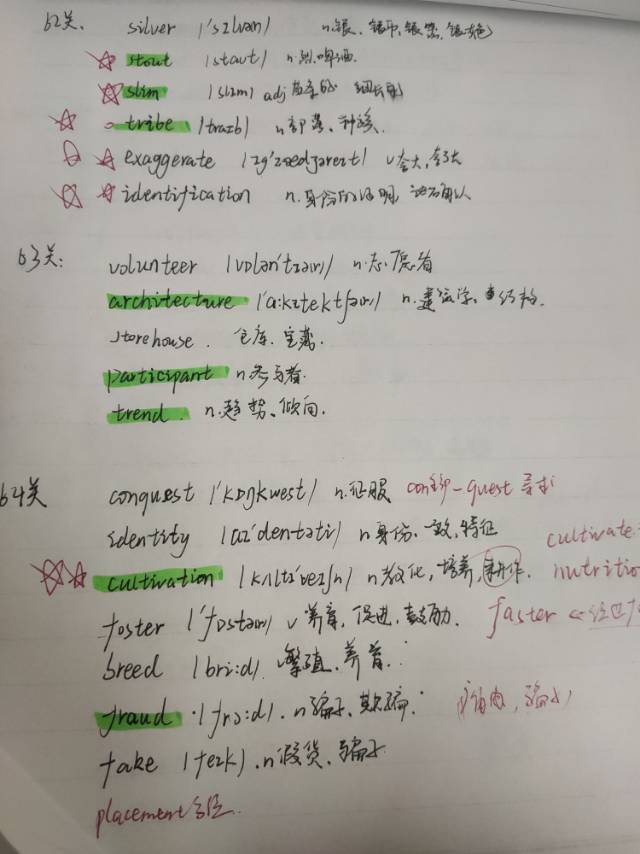 62关. silver |'sɪlvə(r)| n.银、银币、银器、银色
stout |staʊt| n.烈啤酒.
slim |slɪm| adj 苗条的
tribe |traɪb| n部落、种族.
exaggerate |ɪɡ'zædʒəreɪt| v夸大,夸张
identification n.身份的证明 确认
63关: volunteer |vɒlən'tɪə(r)| n.志愿者
architecture |'ɑ:kɪtektʃə(r)| n.建筑学、结构.
storehouse. 仓库. 宝藏.
participant n参与者.
trend. n.趋势、倾向.
64关 conquest |'kɒŋkwest| n.征服 con全部-quest 寻求
identity |aɪ'dentəti| n身份、一致,特征
cultivate
cultivation |kʌltɪ'veɪʃn| n教化,培养,耕作. nutritio
foster |'fɒstə(r)| v养育,促进,鼓励. faster
breed |bri:d| 繁殖、养育.
fraud |frɔ:d|. n骗子、欺骗.
fake |feɪk|. n假货、骗子
placement